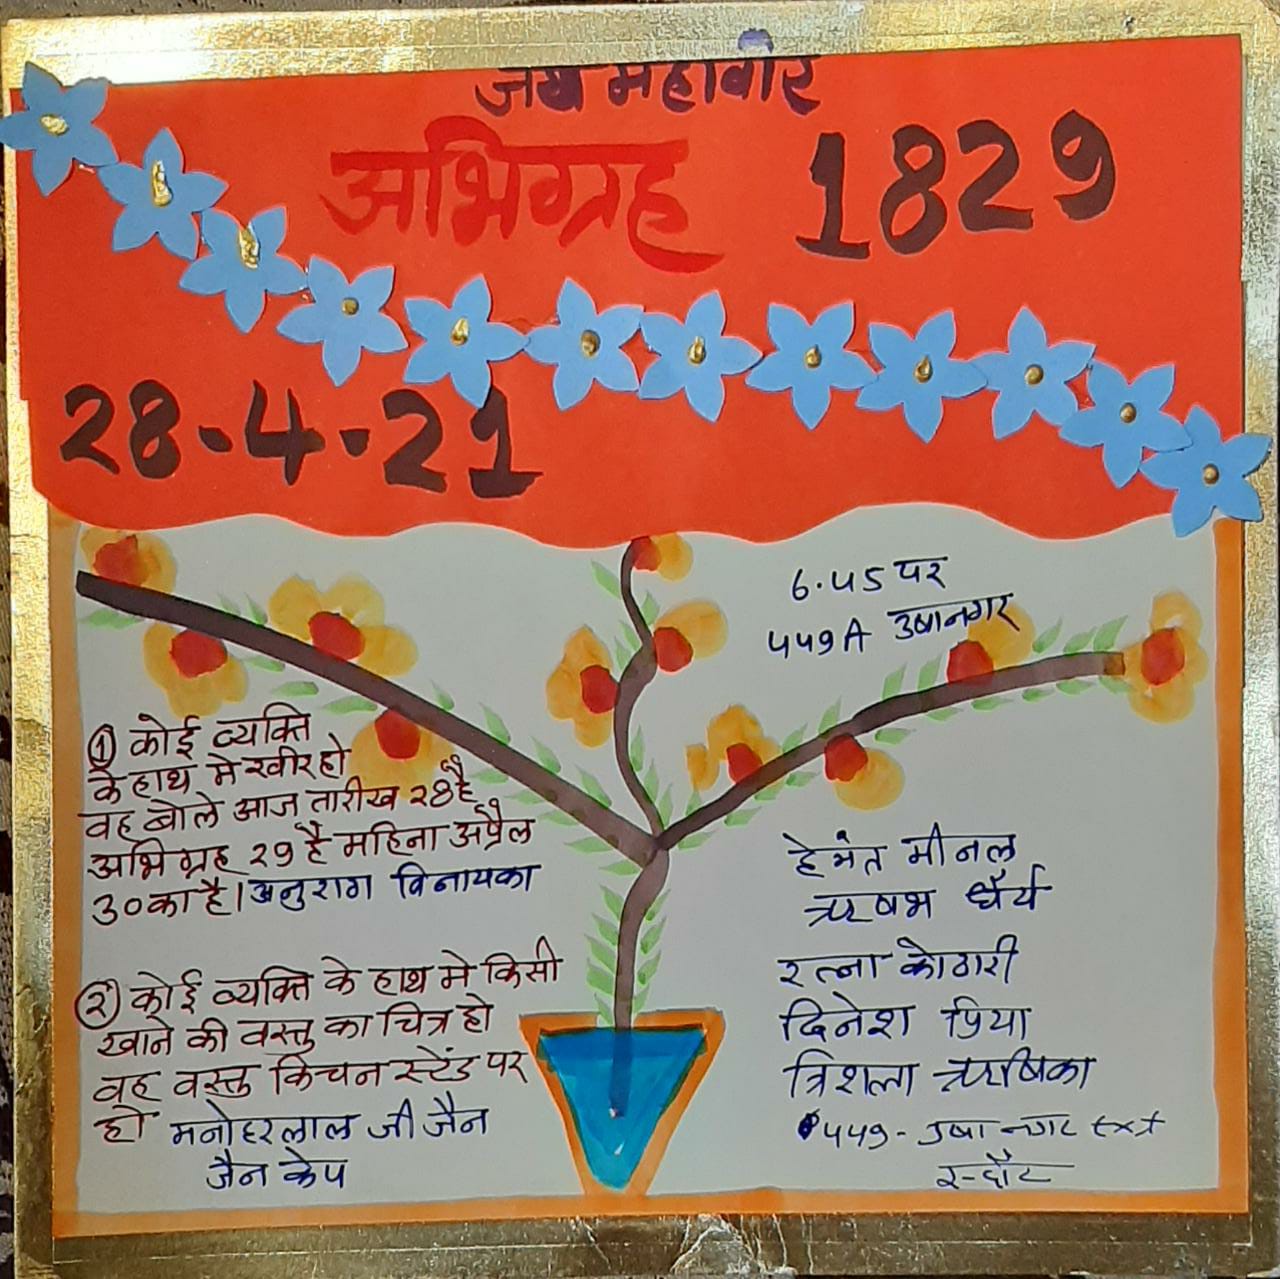 जय महावीर
अभिग्रह 1829
28.4.21
6.45 पर
449A उषानगर
① कोई व्यक्ति
के हाथ मे खीर हो
वह बोले आज तारीख २8 है
अभिग्रह २9 है महिना अप्रैल
३० का है। अनुराग विनायका
② कोई व्यक्ति के हाथ मे किसी
खाने की वस्तु का चित्र हो
वह वस्तु किचन स्टेंड पर
हो मनोहरलाल जी जैन
जैन केप
हेमंत मीनल
ऋषभ धैर्य
रत्ना कोठारी
दिनेश प्रिया
त्रिशला ऋषिका
449- उषा नगर ext